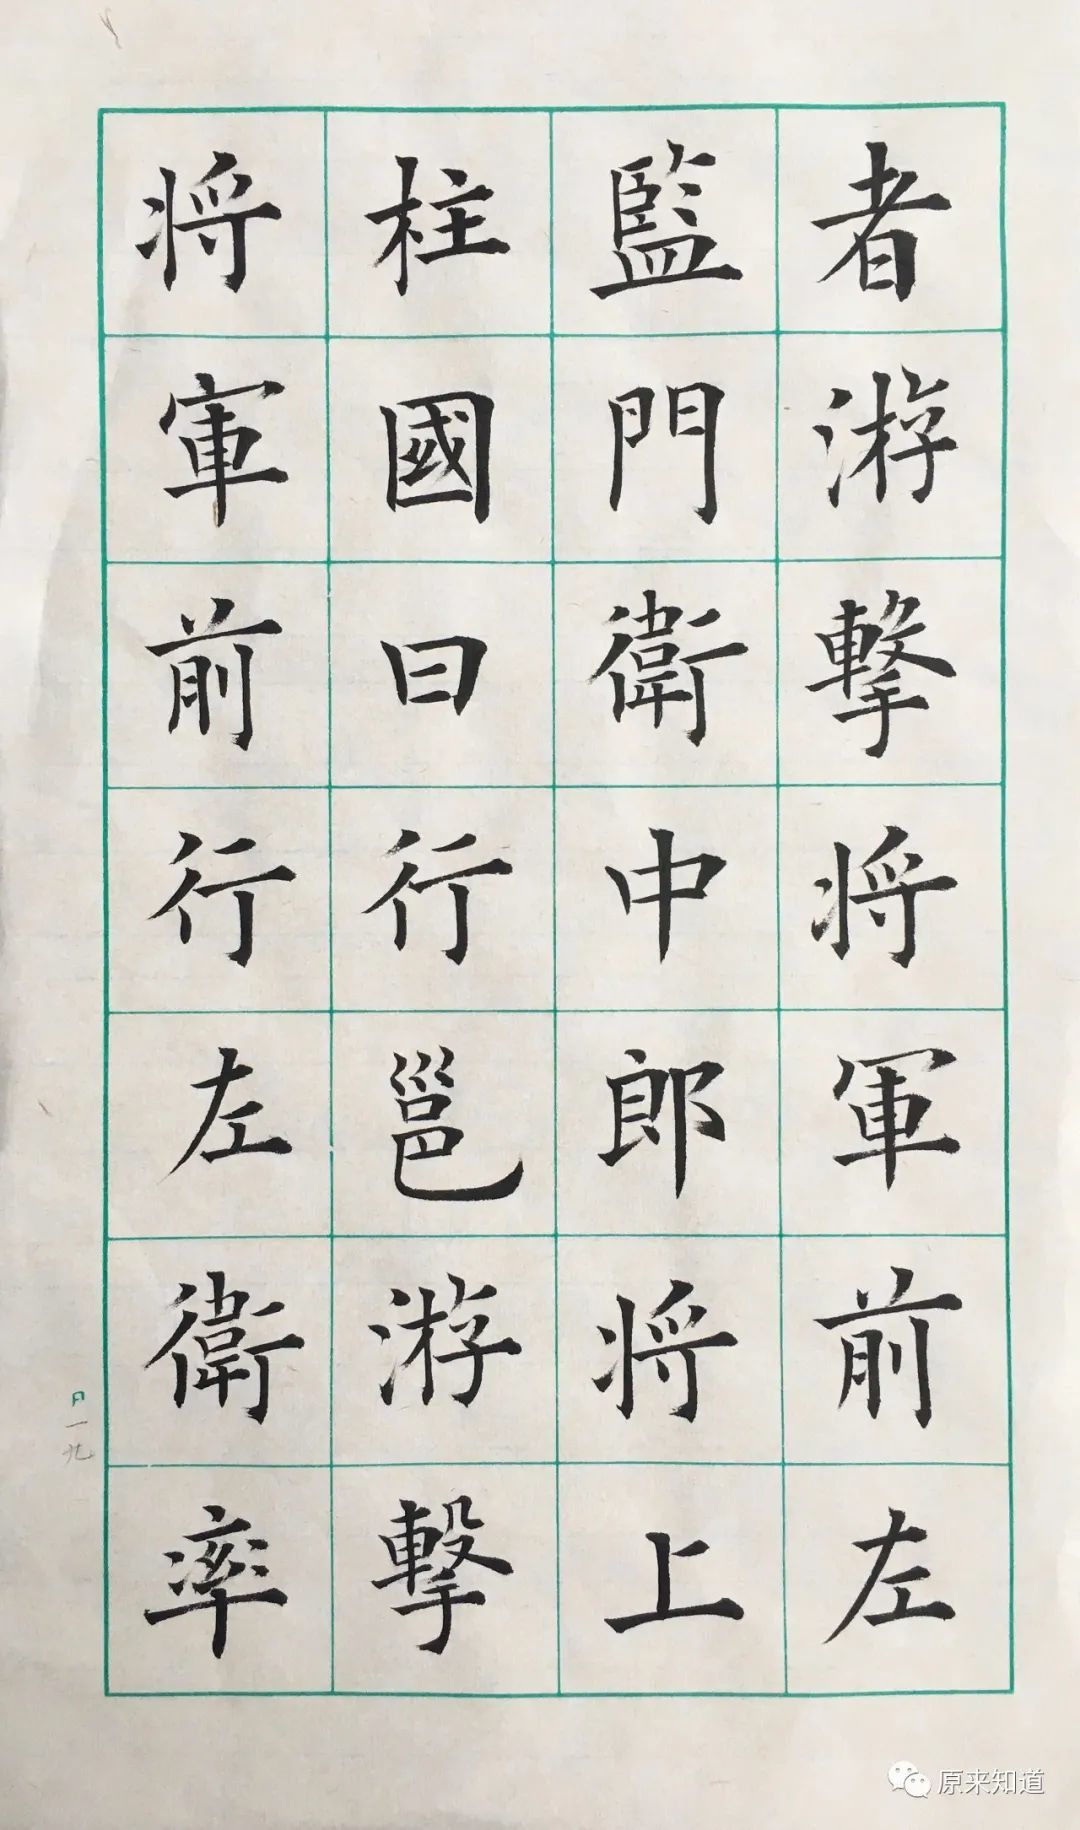 者游擊将軍前左
監門衛中郎将上
柱國曰行邕游擊
将軍前行左衛率
原来知道